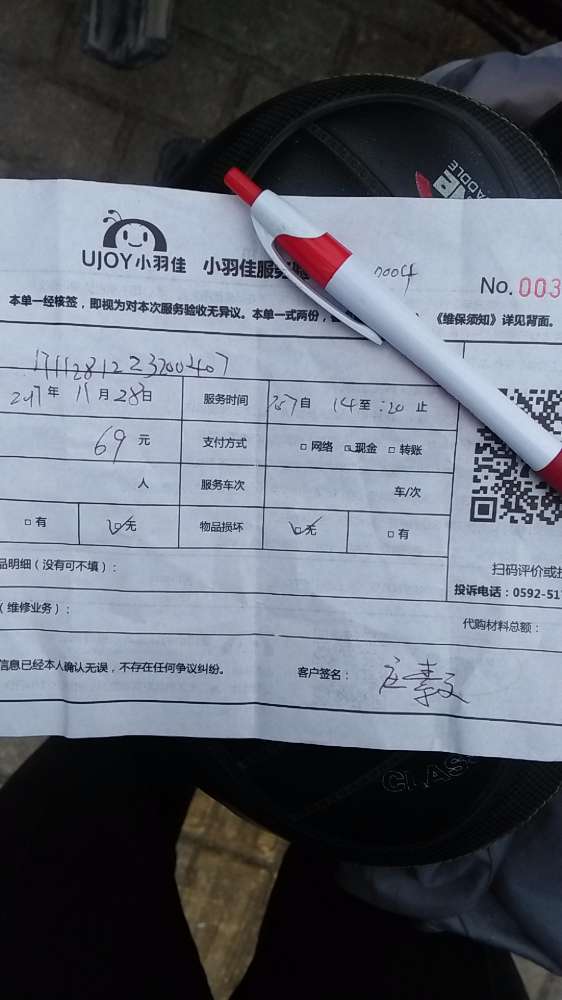 UJOY小羽佳 小羽佳服务
7004
No. 003
本单一经核签，即视为对本次服务验收无异议。本单一式两份，
《维保须知》详见背面。
2017年 11月 28日 服务时间 自 14至:20止
69元 支付方式 □网络 □现金 □转账
人 服务车次 车/次
□有 □无 物品损坏 □无 □有
品明细（没有可不填）：
扫码评价或投
投诉电话：0592-51
（维修业务）：
代购材料总额：
信息已经本人确认无误，不存在任何争议纠纷。 客户签名：
CLAS